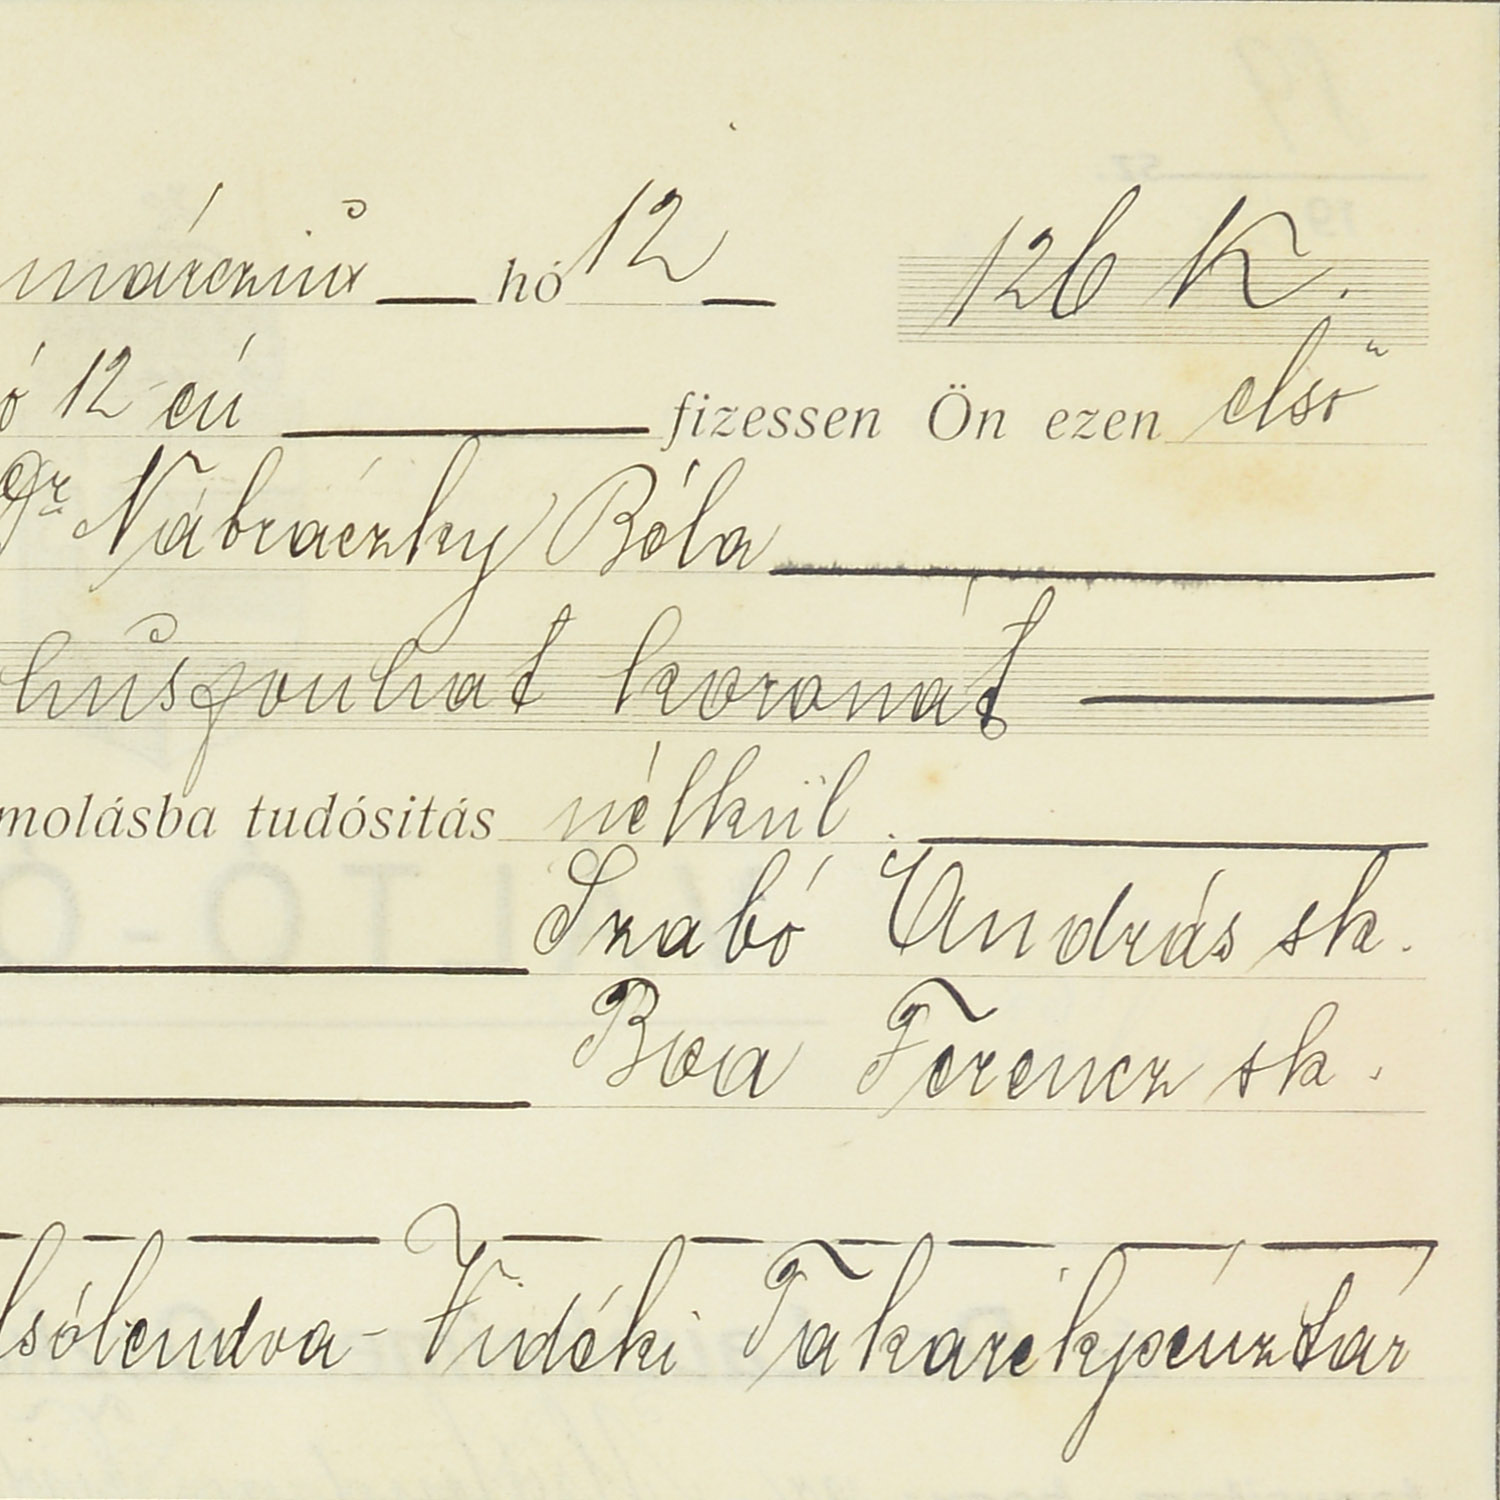 márczius hó 12 126 K.
ó 12-én fizessen Ön ezen első
Dr Nábráczky Béla
húszonhat koronát
molásba tudósitás nélkül.
Szabó András sk.
Boa Ferencz sk.
lsólendva-Vidéki Takarékpénztár